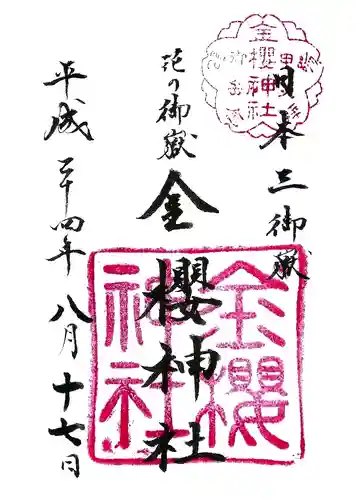 日本三御嶽
花の御嶽
金櫻神社
平成二十四年八月十七日
金櫻神社
金櫻神社